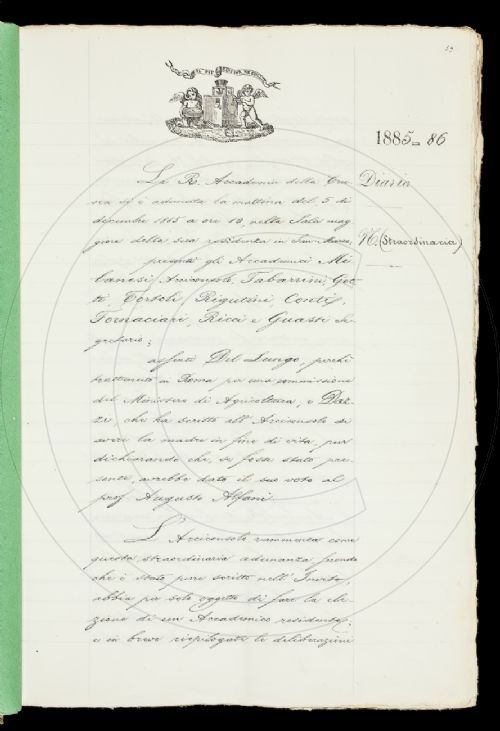 19
IL PIÙ BEL FIOR NE COGLIE
1885=86
La R. Accademia della Cru-
sca si è adunata la mattina del 5 di
dicembre 1885 a ore 10, nella Sala mag-
giore della sua residenza in San Marco,
presenti gli Accademici Mi-
lanesi Arciconsolo, Tabarrini, Got-
ti, Tortoli, Rigutini, Conti,
Fornaciari, Ricci e Guasti Se-
gretario;
assenti Del Lungo, perchè
trattenuto in Roma per una commissione
del Ministero di Agricoltura, e Daz-
zi, che ha scritto all'Arciconsolo di
avere la madre in fine di vita, pur
dichiarando che, se fosse stato pre-
sente, avrebbe dato il suo voto al
prof. Augusto Alfani.
L'Arciconsolo rammenta come
questa straordinaria adunanza, secondo
che è stato pure scritto nell'Invito,
abbia per solo oggetto di fare la ele-
zione di un Accademico residente;
e in breve riepilogate le deliberazioni
Diaria
N. (Straordinaria)